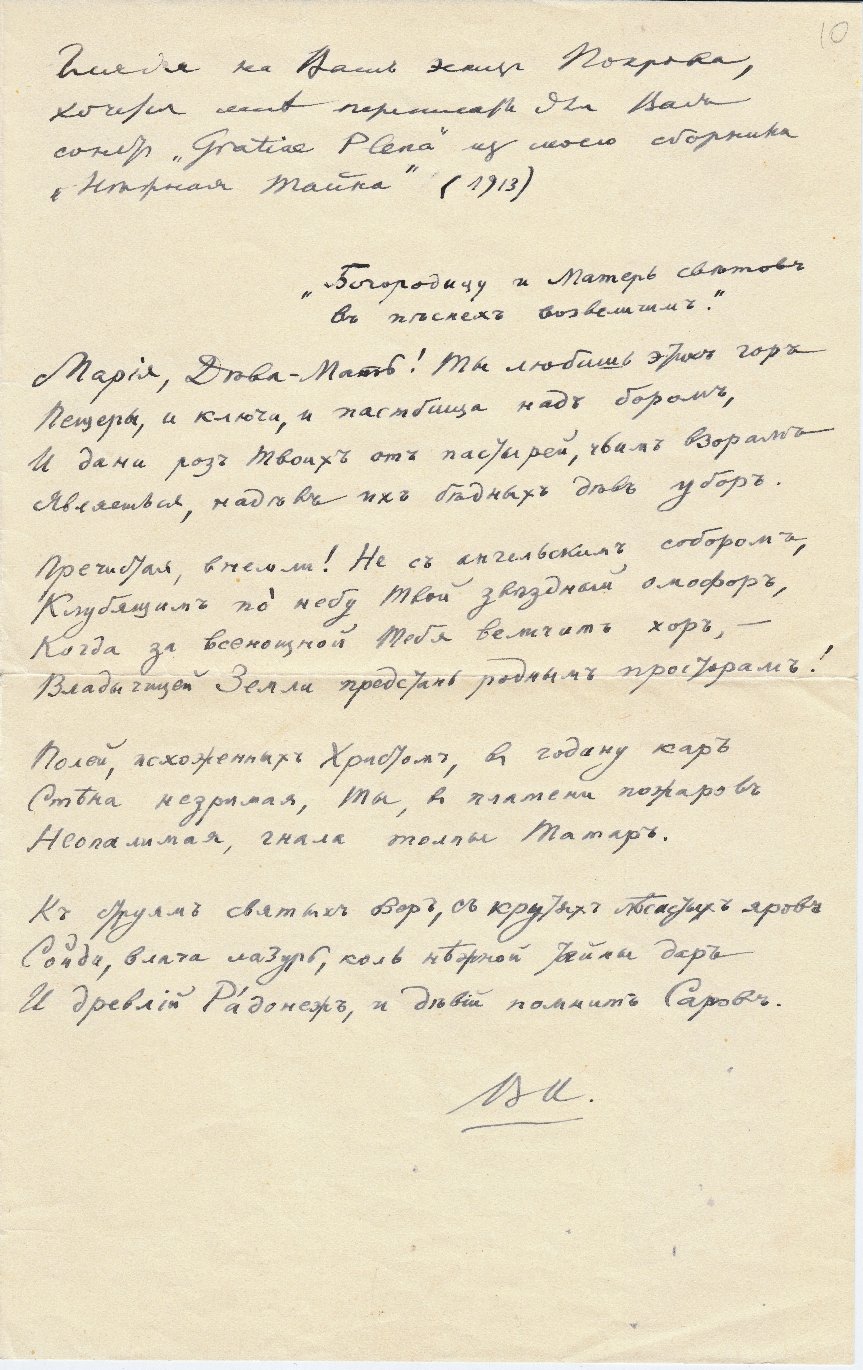 10
Глядя на Вашъ эскизъ Покрова,
хочется мнѣ переписать для Васъ
сонетъ „Gratiae Plena" из моего сборника
„Нѣжная Тайна" (1913)
„Богородицу и Матерь свѣтовъ
въ пѣснехъ возвеличимъ."
Марія, Дѣва-Мать! Ты любишь этихъ горъ
Пещеры, и ключи, и пастбища надъ боромъ,
И дани розъ Твоихъ отъ пастырей, чьимъ взорамъ
Являешься, надѣвъ ихъ бѣдныхъ дѣвъ уборъ.
Пречистая, внемли! Не съ ангельскимъ соборомъ,
Клубящимъ по́ небу Твой звѣздный омофоръ,
Когда за всенощной Тебя величитъ хоръ, –
Владычицей Земли предстань роднымъ просторамъ!
Полей, исхоженныхъ Христомъ, въ годину каръ
Стѣна незримая, Ты, въ пламени пожаровъ
Неопалимая, гнала толпы Татаръ.
Къ струямъ святыхъ озеръ, съ крутыхъ лѣсистыхъ яровъ
Сойди, влача лазурь, коль нѣжной тайны даръ
И древлій Ра́донежъ, и дѣвій помнитъ Саровъ.
ВИ.